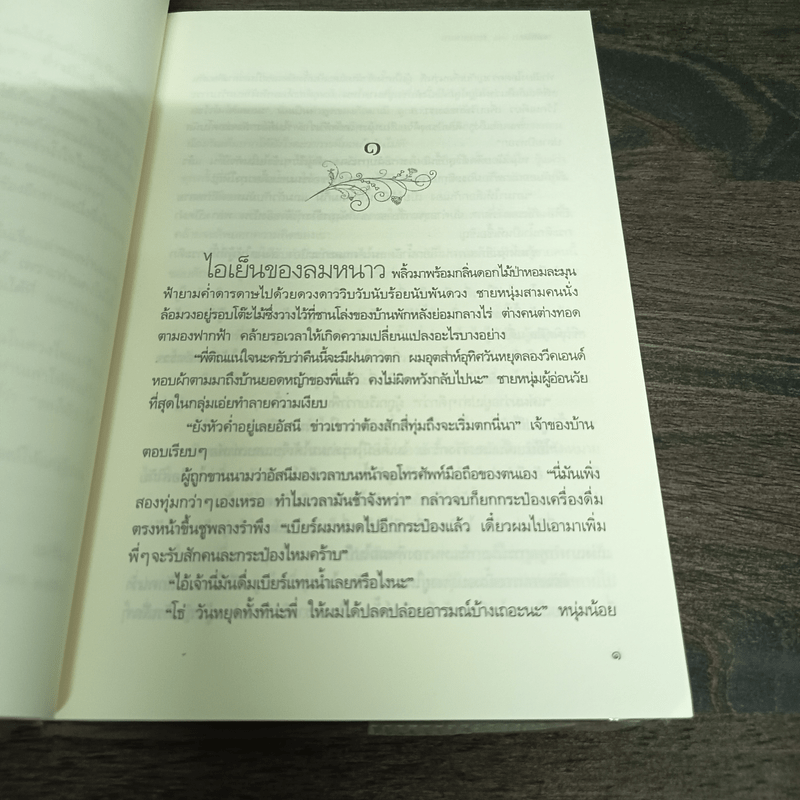 ๑
ไอเย็นของลมหนาว พลิ้วมาพร้อมกลิ่นดอกไม้ป่าหอมละมุน
ฟ้ายามค่ำดารดาษไปด้วยดวงดาววิบวับนับร้อยนับพันดวง ชายหนุ่มสามคนนั่ง
ล้อมวงอยู่รอบโต๊ะไม้ซึ่งวางไว้ที่ชานโล่งของบ้านพักหลังย่อมกลางไร่ ต่างคนต่างทอด
ตามองฟากฟ้า คล้ายรอเวลาให้เกิดความเปลี่ยนแปลงอะไรบางอย่าง
“พี่ติณแน่ใจนะครับว่าคืนนี้จะมีฝนดาวตก ผมอุตส่าห์อุทิศวันหยุดลองวีคเอนด์
หอบผ้าตามมาถึงบ้านยอดหญ้าของพี่แล้ว คงไม่ผิดหวังกลับไปนะ” ชายหนุ่มผู้อ่อนวัย
ที่สุดในกลุ่มเอ่ยทำลายความเงียบ
“ยังหัวค่ำอยู่เลยอัสนี ข่าวเขาว่าต้องสักสี่ทุ่มถึงจะเริ่มตกนี่นา” เจ้าของบ้าน
ตอบเรียบๆ
ผู้ถูกขานนามว่าอัสนีมองเวลาบนหน้าจอโทรศัพท์มือถือของตนเอง “นี่มันเพิ่ง
สองทุ่มกว่าๆเองเหรอ ทำไมเวลามันช้าจังหว่า” กล่าวจบก็ยกกระป๋องเครื่องดื่ม
ตรงหน้าขึ้นชูพลางรำพึง “เบียร์ผมหมดไปอีกกระป๋องแล้ว เดี๋ยวผมไปเอามาเพิ่ม
พี่ๆจะรับสักคนละกระป๋องไหมคร้าบ”
“ไอ้เจ้านี่มันดื่มเบียร์แทนน้ำเลยหรือไงนะ”
“โธ่ วันหยุดทั้งทีน่ะพี่ ให้ผมได้ปลดปล่อยอารมณ์บ้างเถอะนะ” หนุ่มน้อย
๑